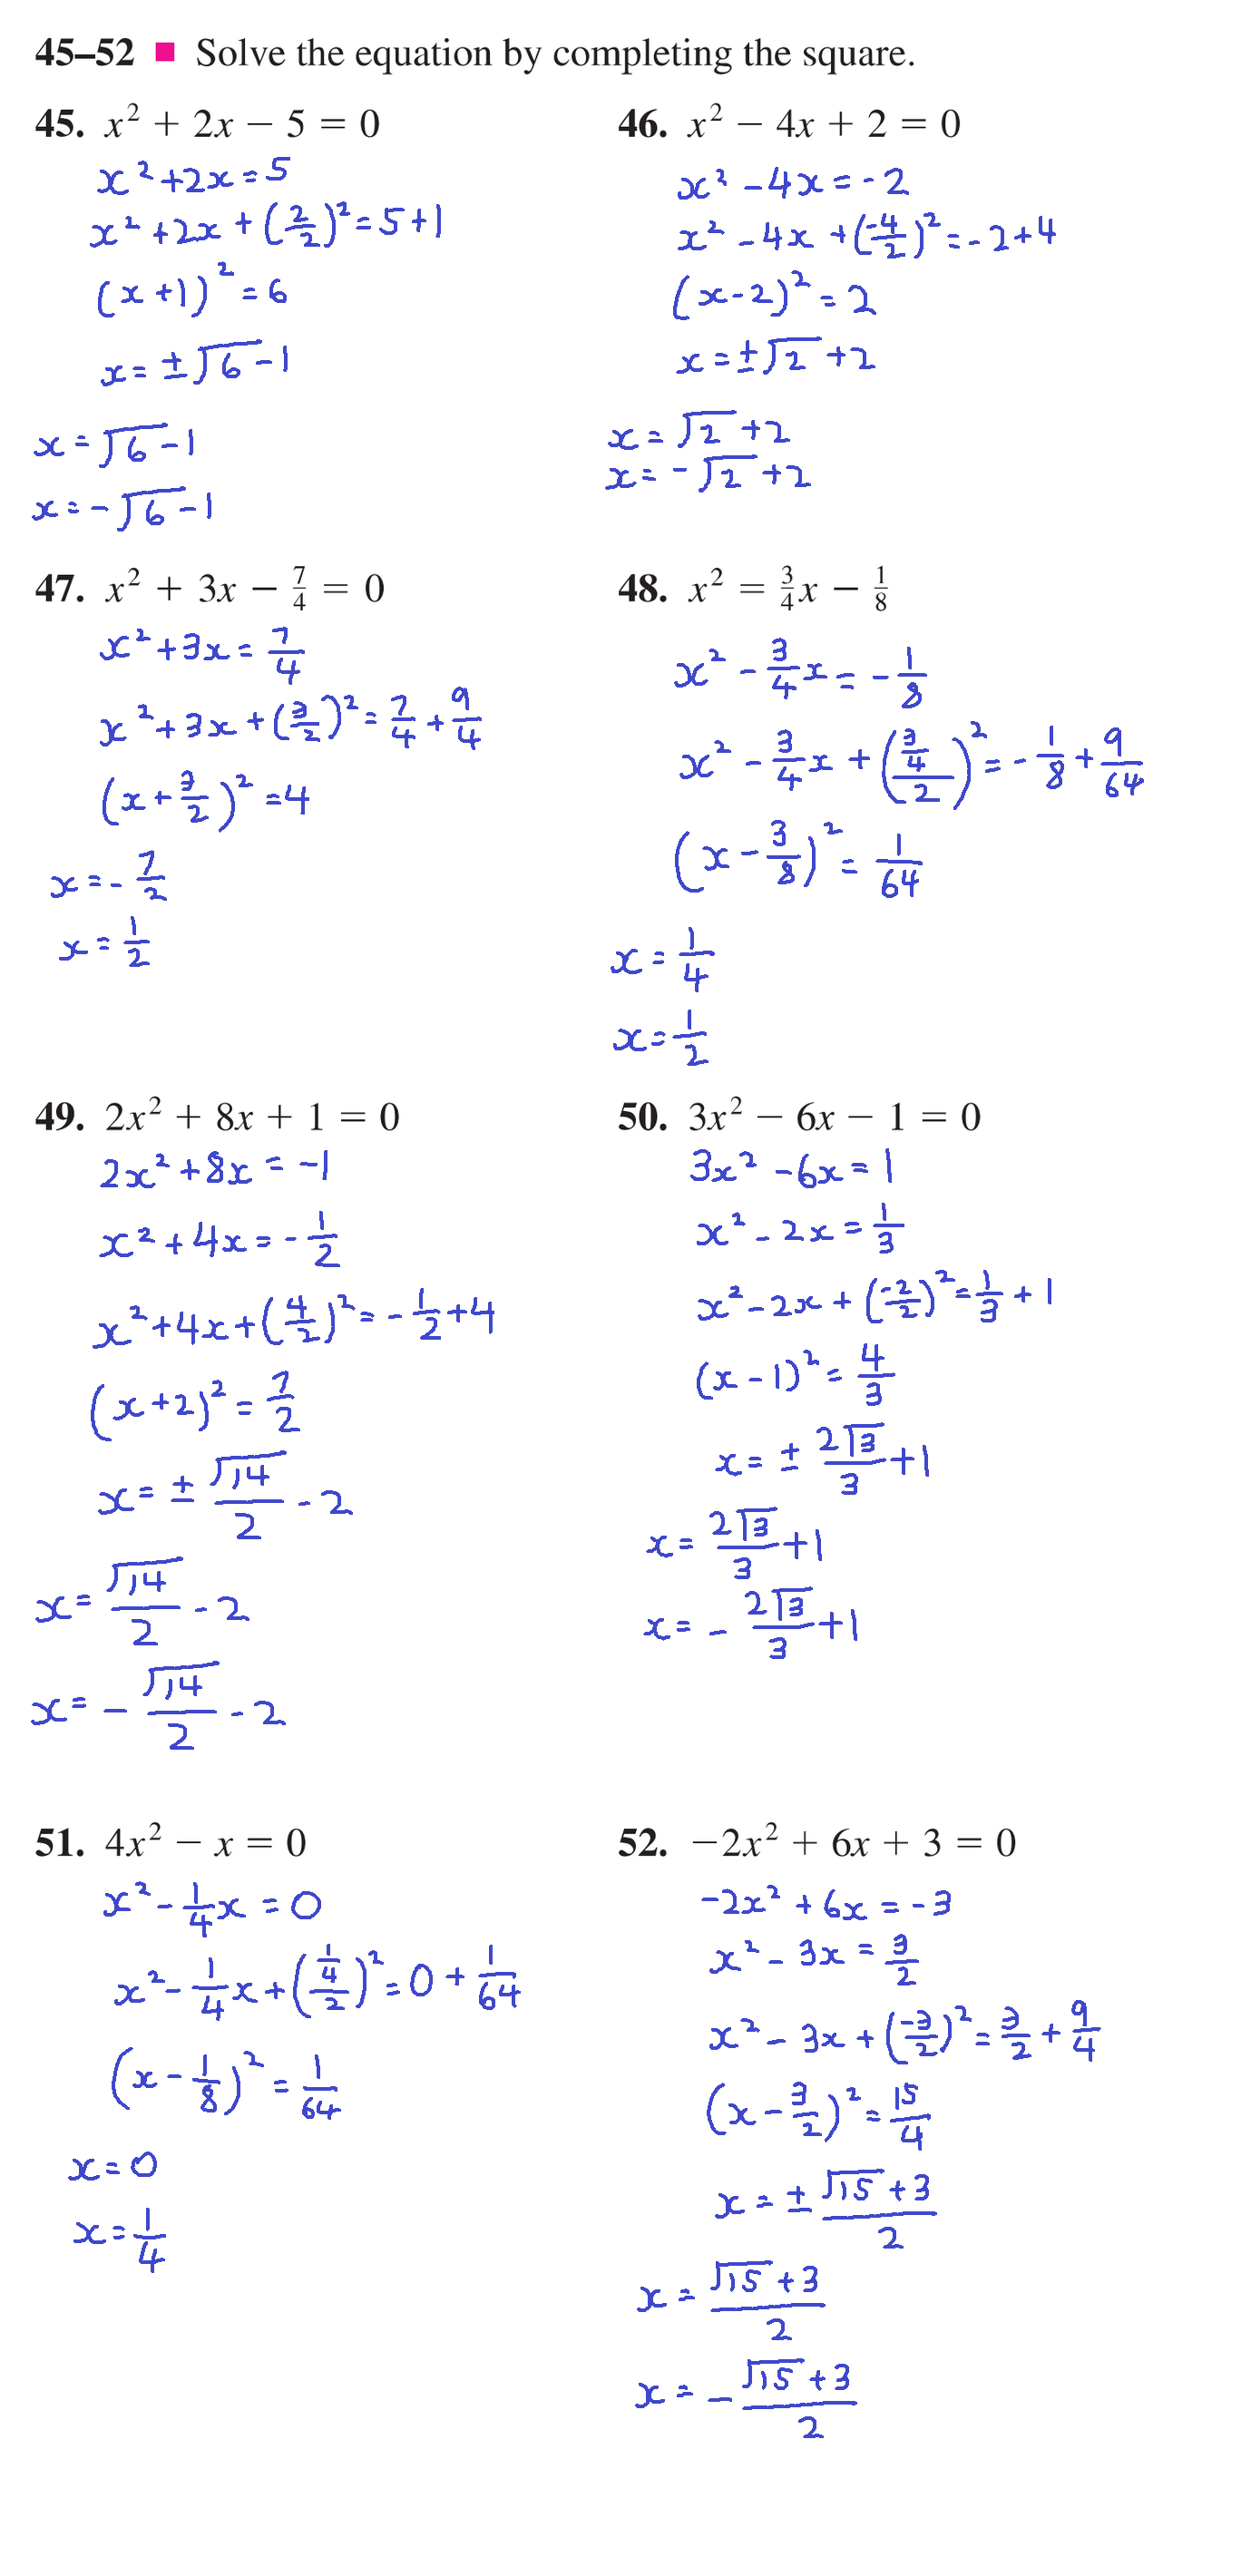 45–52 ■ Solve the equation by completing the square.
45. x² + 2x − 5 = 0
x²+2x=5
x²+2x+(2/2)²=5+1
(x+1)²=6
x=±√6-1
x=√6-1
x=-√6-1
46. x² − 4x + 2 = 0
x²-4x=-2
x²-4x+(-4/2)²=-2+4
(x-2)²=2
x=±√2+2
x=√2+2
x=-√2+2
47. x² + 3x − 7/4 = 0
x²+3x=7/4
x²+3x+(3/2)²=7/4+9/4
(x+3/2)²=4
x=-7/2
x=1/2
48. x² = 3/4x − 1/8
x²-3/4x=-1/8
x²-3/4x+((3/4)/2)²=-1/8+9/64
(x-3/8)²=1/64
x=1/4
x=1/2
49. 2x² + 8x + 1 = 0
2x²+8x=-1
x²+4x=-1/2
x²+4x+(4/2)²=-1/2+4
(x+2)²=7/2
x=±√14/2-2
x=√14/2-2
x=-√14/2-2
50. 3x² − 6x − 1 = 0
3x²-6x=1
x²-2x=1/3
x²-2x+(-2/2)²=1/3+1
(x-1)²=4/3
x=±2√3/3+1
x=2√3/3+1
x=-2√3/3+1
51. 4x² − x = 0
x²-1/4x=0
x²-1/4x+((1/4)/2)²=0+1/64
(x-1/8)²=1/64
x=0
x=1/4
52. −2x² + 6x + 3 = 0
-2x²+6x=-3
x²-3x=3/2
x²-3x+(-3/2)²=3/2+9/4
(x-3/2)²=15/4
x=±(√15+3)/2
x=(√15+3)/2
x=-(√15+3)/2